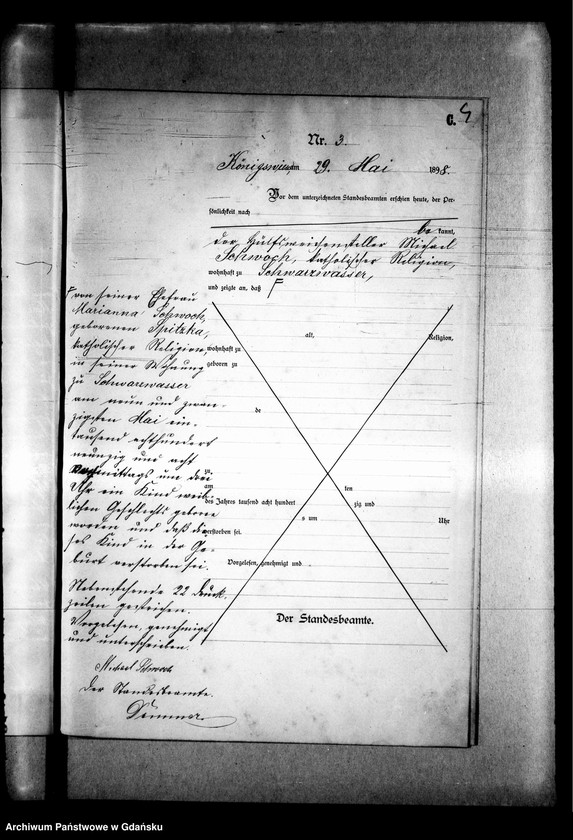 C.
Nr. 3.
Königswiese am 29. Mai 1898.
Vor dem unterzeichneten Standesbeamten erschien heute, der Per-
sönlichkeit nach
be kannt,
der Hülfsweichensteller Michael
Schwoch, katholischer Religion,
wohnhaft zu Schwarzwasser,
und zeigte an, daß
von seiner Ehefrau
Marianna Schwoch,
geborenen Spitzka,
katholischer Religion,
in seiner Wohnung
zu Schwarzwasser
am neun und zwan-
zigsten Mai ein-
tausend achthundert
neunzig und acht
mittags um drei
Uhr ein Kind weib-
lichen Geschlechts geboren
worden und daß die-
ses Kind in der Ge-
burt verstorben sei.
Nebenstehende 22 Druck-
zeilen gestrichen.
Vorgelesen, genehmigt
und unterschrieben.
Michael Schwoch
Der Standesbeamte.
alt, Religion,
wohnhaft zu
geboren zu
de
zu
am ten
des Jahres tausend acht hundert zig und
s um Uhr
verstorben sei.
Vorgelesen, genehmigt und
Der Standesbeamte.
Archiwum Państwowe w Gdańsku